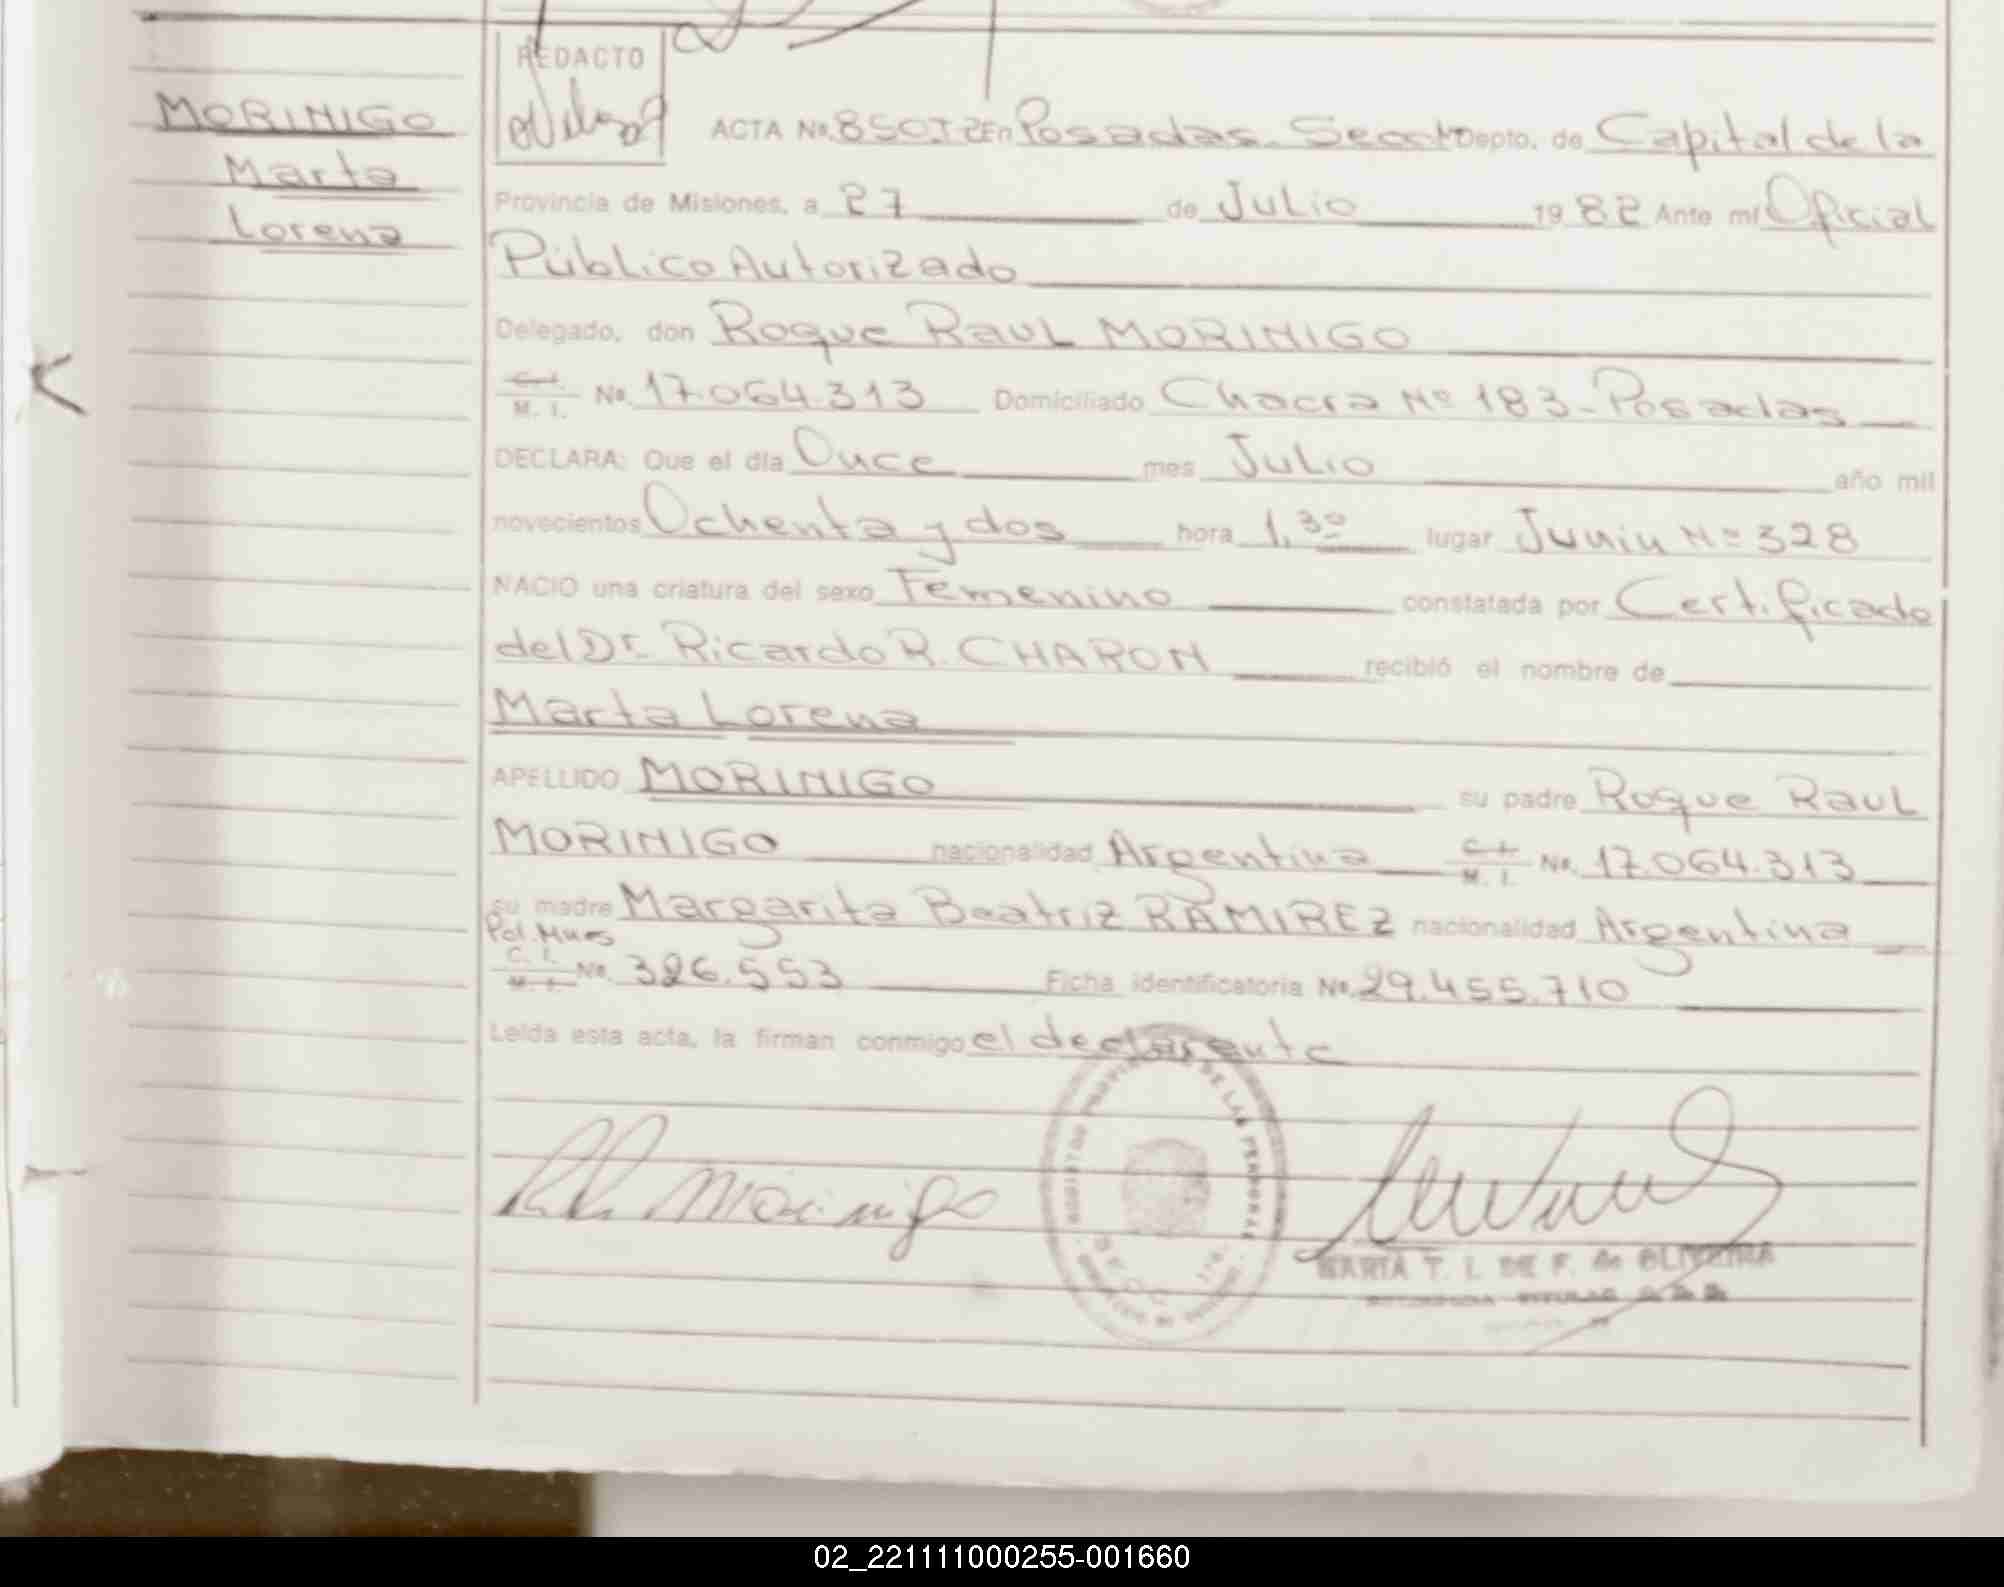 REDACTO
MORINIGO
Marta
Lorena
ACTA No. 850 T 2 En Posadas. Secc. Depto. de Capital de la
Provincia de Misiones, a 27 de Julio 1982 Ante mi Oficial
Público Autorizado
Delegado, don Roque Raul MORINIGO
C. I. M. I. No. 17.064.313 Domiciliado Chacra Nº 183 - Posadas
DECLARA: Que el día Once mes Julio año mil
novecientos Ochenta y dos hora 1,30 lugar Junin Nº 328
NACIO una criatura del sexo Femenino constatada por Certificado
del Dr. Ricardo R. CHARON recibió el nombre de
Marta Lorena
APELLIDO MORINIGO su padre Roque Raul
MORINIGO nacionalidad Argentina C. I. M. I. No. 17.064.313
su madre Margarita Beatriz RAMIREZ nacionalidad Argentina
Pol. Mnes
C. I. M. I. No. 326.553 Ficha identificatoria No. 29.455.710
Leída esta acta, la firman conmigo el declarante
REGISTRO PROVINCIAL DE LAS PERSONAS
MARIA T. I. DE F. de OLIVEIRA
02_221111000255-001660